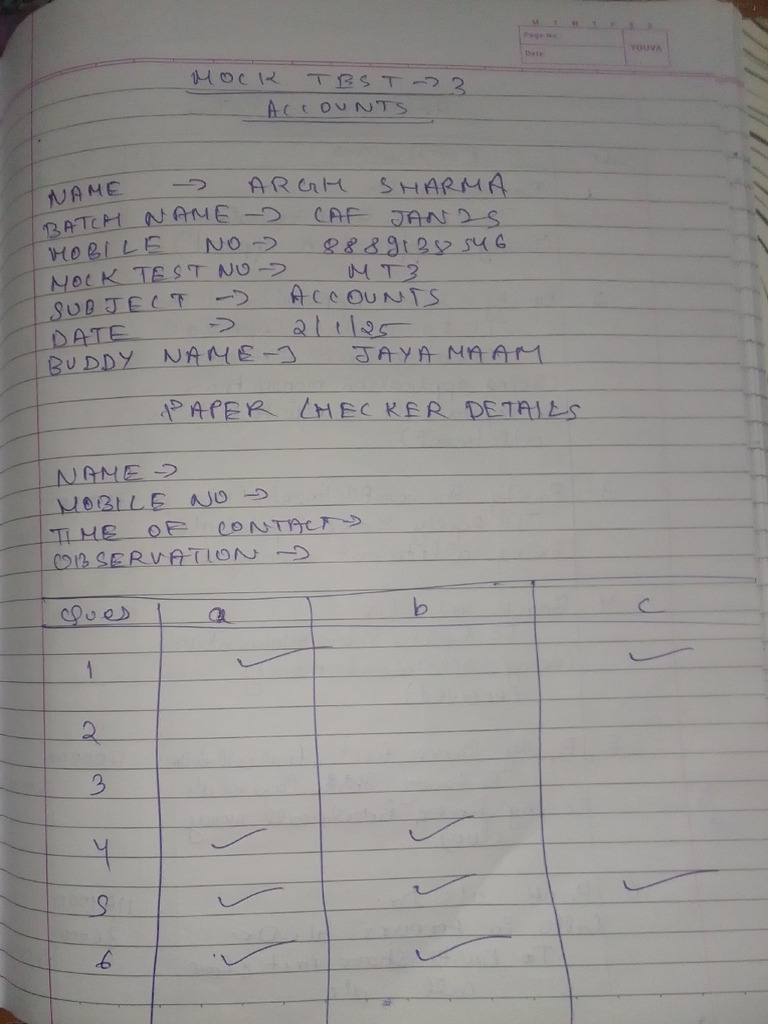 M T W T F S S
Page No.
Date
YOUVA
MOCK TEST → 3
ACCOUNTS
NAME → ARGH SHARMA
BATCH NAME → CAF JAN25
MOBILE NO →
MOCK TEST NO → MT3
SUBJECT → ACCOUNTS
DATE → 2/1/25
BUDDY NAME → JAYA MAAM
PAPER CHECKER DETAILS
NAME →
MOBILE NO →
TIME OF CONTACT →
OBSERVATION →
Ques a b c
1 ✓ ✓
2
3
4 ✓ ✓
5 ✓ ✓ ✓
6 ✓ ✓